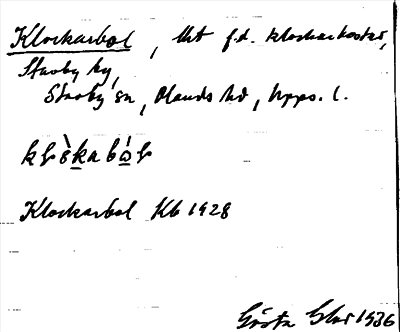 Klockarbol, lht f.d. klockarbostäl,
Stavby by,
Stavby sn, Olands hd, Upps. l.
Klockarbol Kb 1928
Gösta 1936